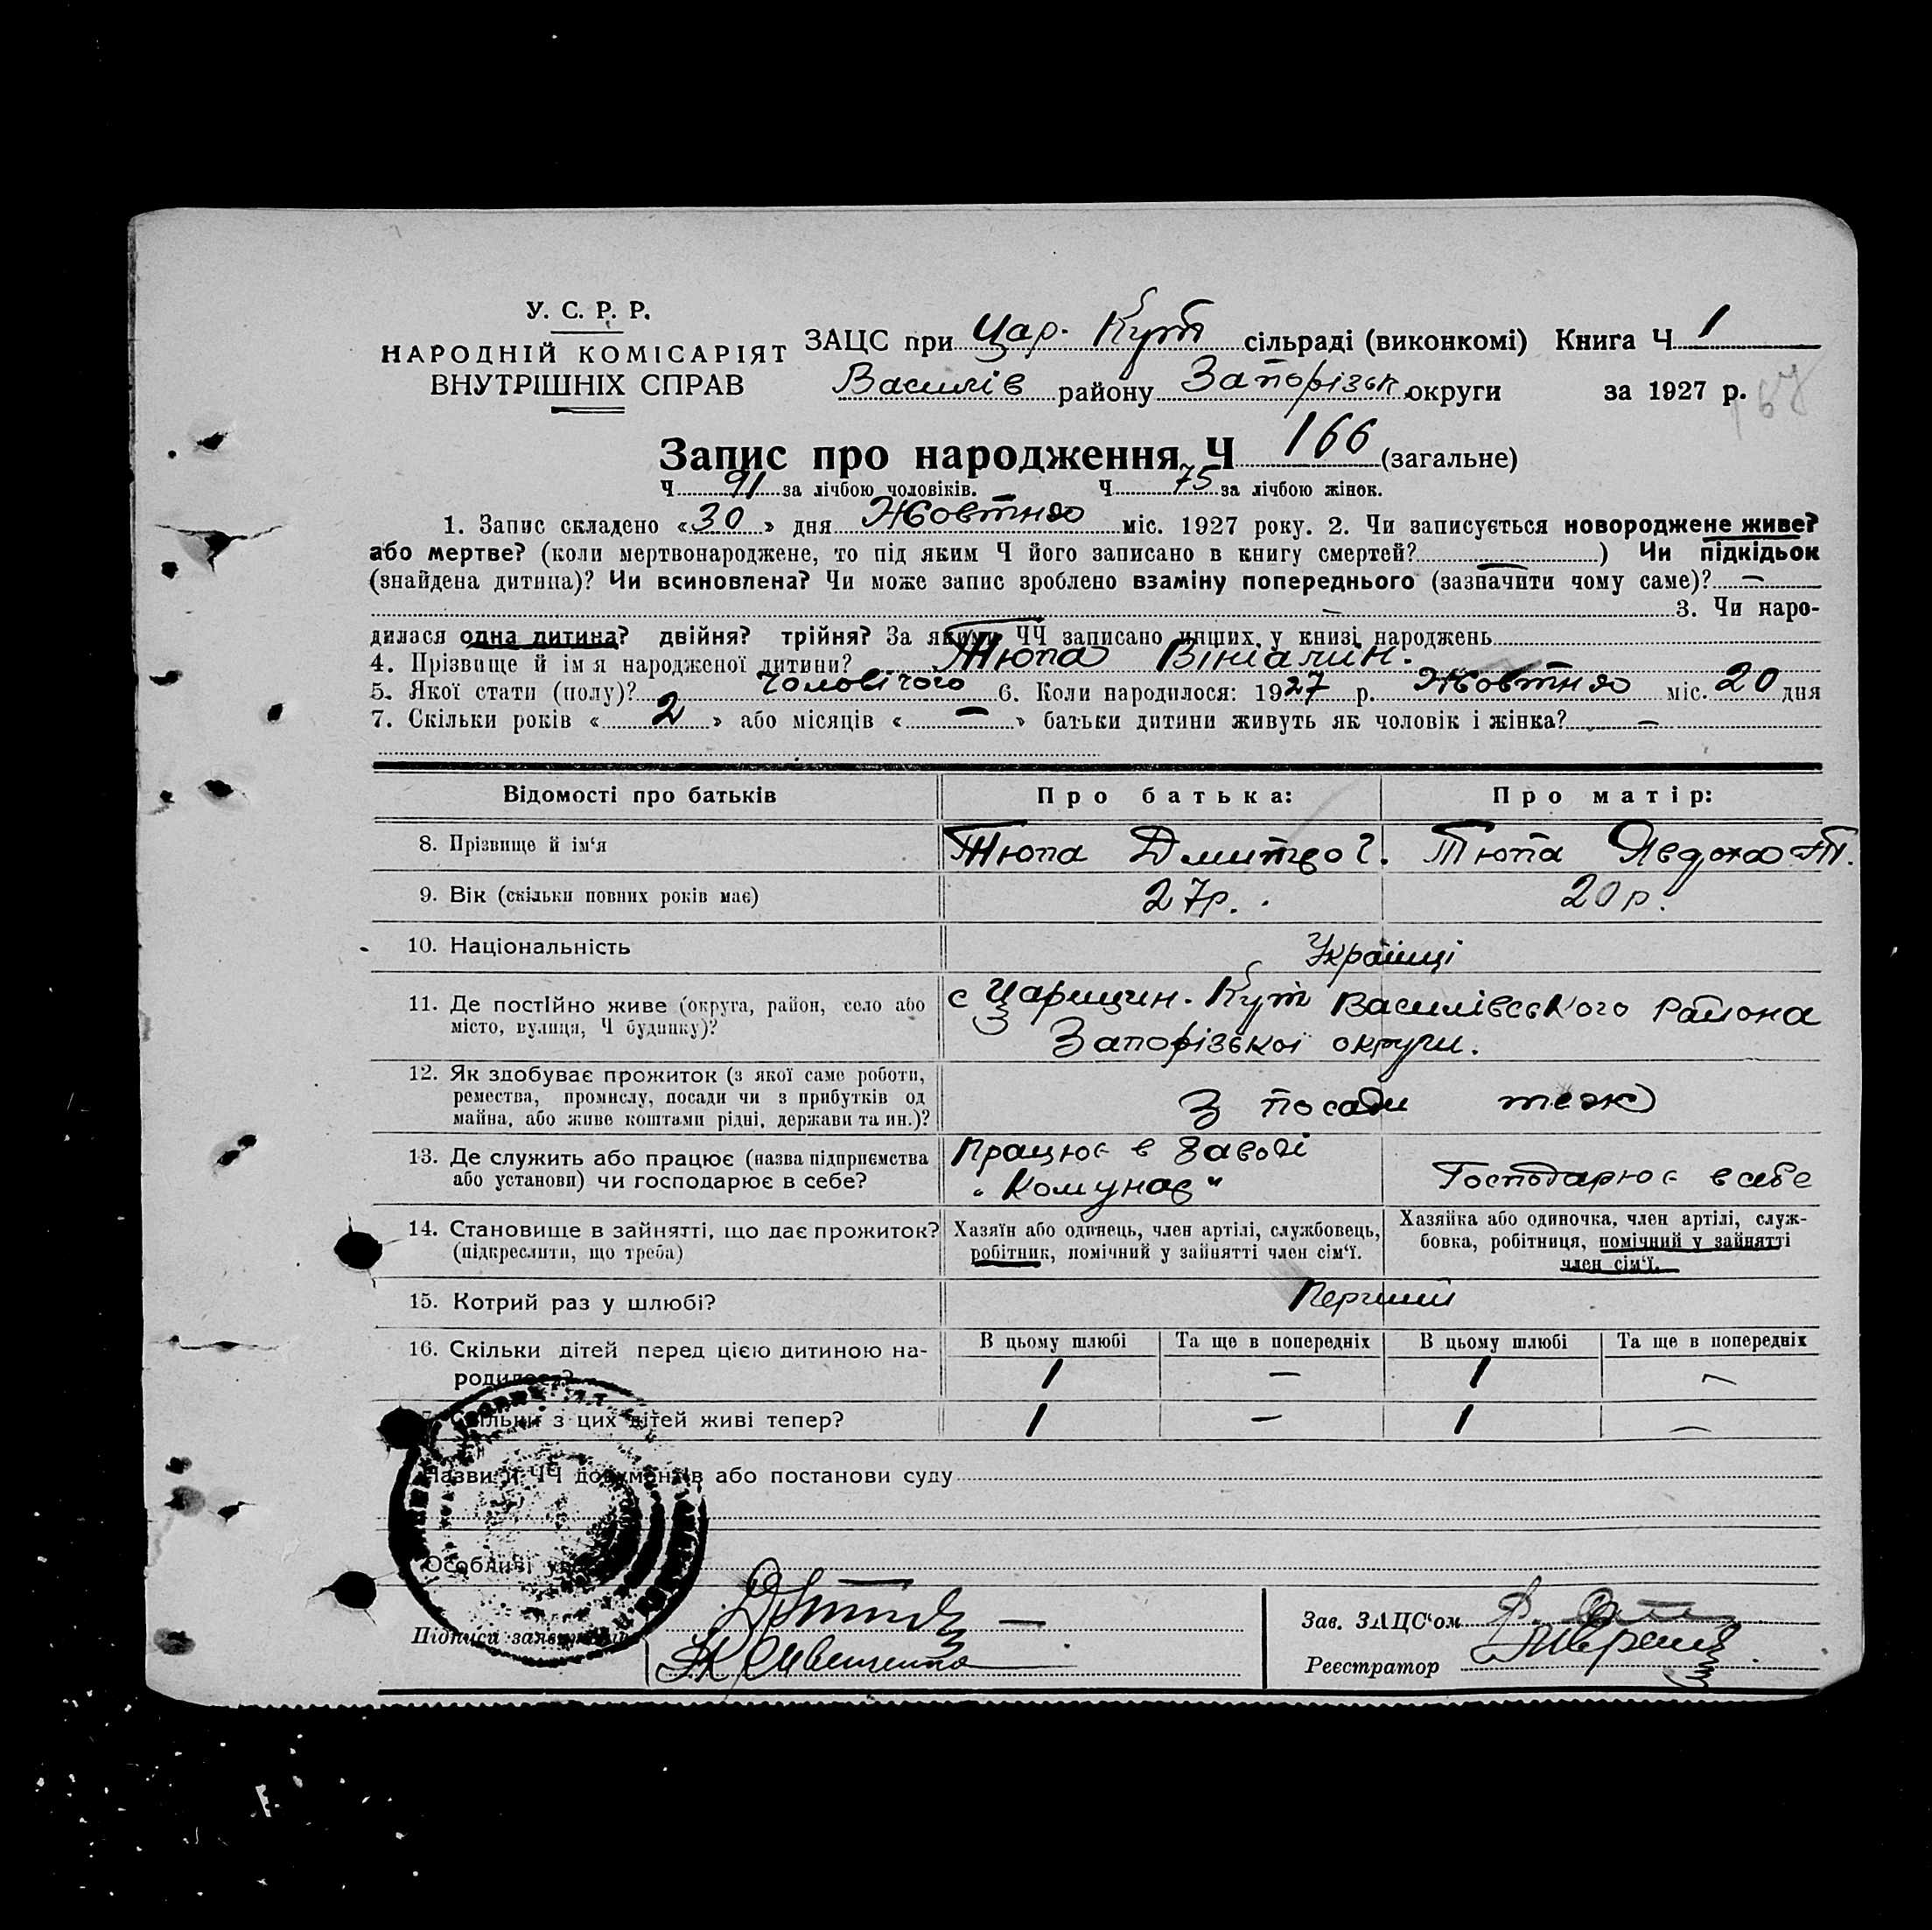 У. С. Р. Р.
НАРОДНІЙ КОМІСАРІЯТ
ВНУТРІШНІХ СПРАВ
ЗАЦС при Цар. Кут сільраді (виконкомі) Книга Ч 1
Василів району Запорізьк округи за 1927 р.
Запис про народження Ч 166 (загальне)
Ч 91 за лічбою чоловіків. Ч 75 за лічбою жінок.
1. Запис складено «30» дня Жовтня міс. 1927 року. 2. Чи записується новороджене живе?
або мертве? (коли мертвонароджене, то під яким Ч його записано в книгу смертей? —) Чи підкідьок
(знайдена дитина)? Чи всиновлена? Чи може запис зроблено взаміну попереднього (зазначити чому саме)? —
— 3. Чи наро-
дилася одна дитина? двійня? трійня? За якими ЧЧ записано инших у книзі народжень
4. Прізвище й ім'я народженої дитини? Тюпа
5. Якої стати (полу)? Чоловічого 6. Коли народилося: 1927 р. Жовтня міс. 20 дня
7. Скільки років «2» або місяців «—» батьки дитини живуть як чоловік і жінка? —
Відомості про батьків Про батька: Про матір:
8. Прізвище й ім'я Тюпа Дмитро Г. Тюпа Явдоха Т.
9. Вік (скільки повних років має) 27р. 20р.
10. Національність Українці
11. Де постійно живе (округа, район, село або
місто, вулиця, Ч будинку)?
с Царицин. Кут Василівського района
Запорізької округи.
12. Як здобуває прожиток (з якої саме роботи,
ремества, промислу, посади чи з прибутків од
майна, або живе коштами рідні, держави та ин.)?
З посади теж
13. Де служить або працює (назва підприємства
або установи) чи господарює в себе?
Працює в Заводі
"Комунар"
Господарює в себе
14. Становище в зайнятті, що дає прожиток?
(підкреслити, що треба)
Хазяїн або одинець, член артілі, службовець,
робітник, помічний у зайнятті член сім'ї.
Хазяйка або одиночка, член артілі, служ-
бовка, робітниця, помічний у зайнятті
член сім'ї.
15. Котрий раз у шлюбі? Перший
16. Скільки дітей перед цією дитиною на-
родилося?
В цьому шлюбі Та ще в попередніх В цьому шлюбі Та ще в попередніх
1 — 1 —
Скільки з цих дітей живі тепер? 1 — 1 —
Назви й ЧЧ документів або постанови суду
Особливі
Підписи
Зав. ЗАЦС'ом
Реєстратор